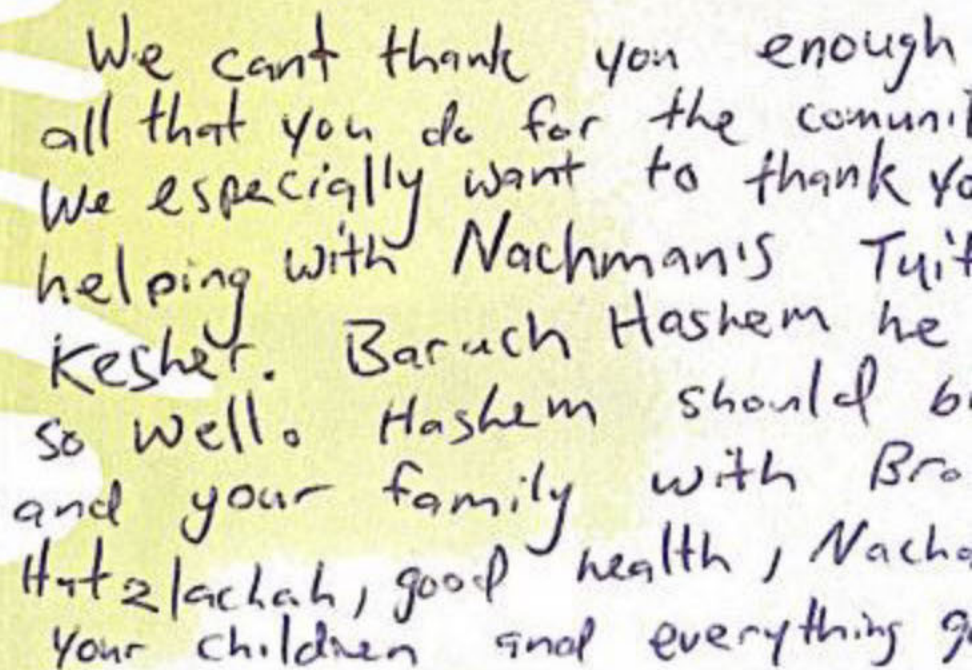 We cant thank you enough
all that you do for the comuni
We especially want to thank yo
helping with Nachman's Tuit
Kesher. Baruch Hashem he
so well. Hashem should b
and your family with Bra
Hatzlachah, good health, Nacha
your children and everything g